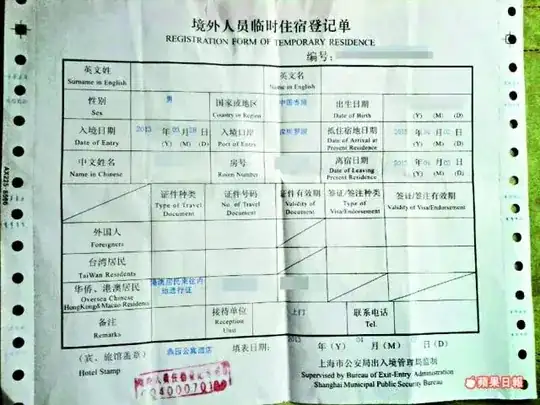 境外人员临时住宿登记单
REGISTRATION FORM OF TEMPORARY RESIDENCE
编号:
英文姓
Surname in English
英文名
Name in English
性别
Sex
男
国家或地区
Country or Region
中国香港
出生日期
Date of Birth
(Y) (M) (D)
入境日期
Date of Entry
2015 年 03 月 28 日
(Y) (M) (D)
入境口岸
Port of Entry
深圳罗湖
抵住宿地日期
Date of Arrival at
Present Residence
2015 年
(Y) (M) (D)
中文姓名
Name in Chinese
房号
Room Number
离宿日期
Date of Leaving
Present Residence
2015 年 04
(Y) (M) (D)
证件种类
Type of Travel
Document
证件号码
No. of Travel
Document
证件有效期
Validity of
Document
签证/签注种类
Type of
Visa/Endorsement
签证/签注有效期
Validity of Visa/Endorsement
外国人
Foreigners
台湾居民
TaiWan Residents
华侨、港澳居民
Oversea Chinese
HongKong&Macao Residents
港澳居民来往内
地通行证
备注
Remarks
接待单位
Reception
Unit
上门
联系电话
Tel.
(宾、旅馆盖章)
Hotel Stamp
填表日期:
2015 年 04 月 日
(Y) (M) (D)
上海市公安局出入境管理局监制
Supervised by Bureau of Exit-Entry Administration
Shanghai Municipal Public Security Bureau
蘋果日報